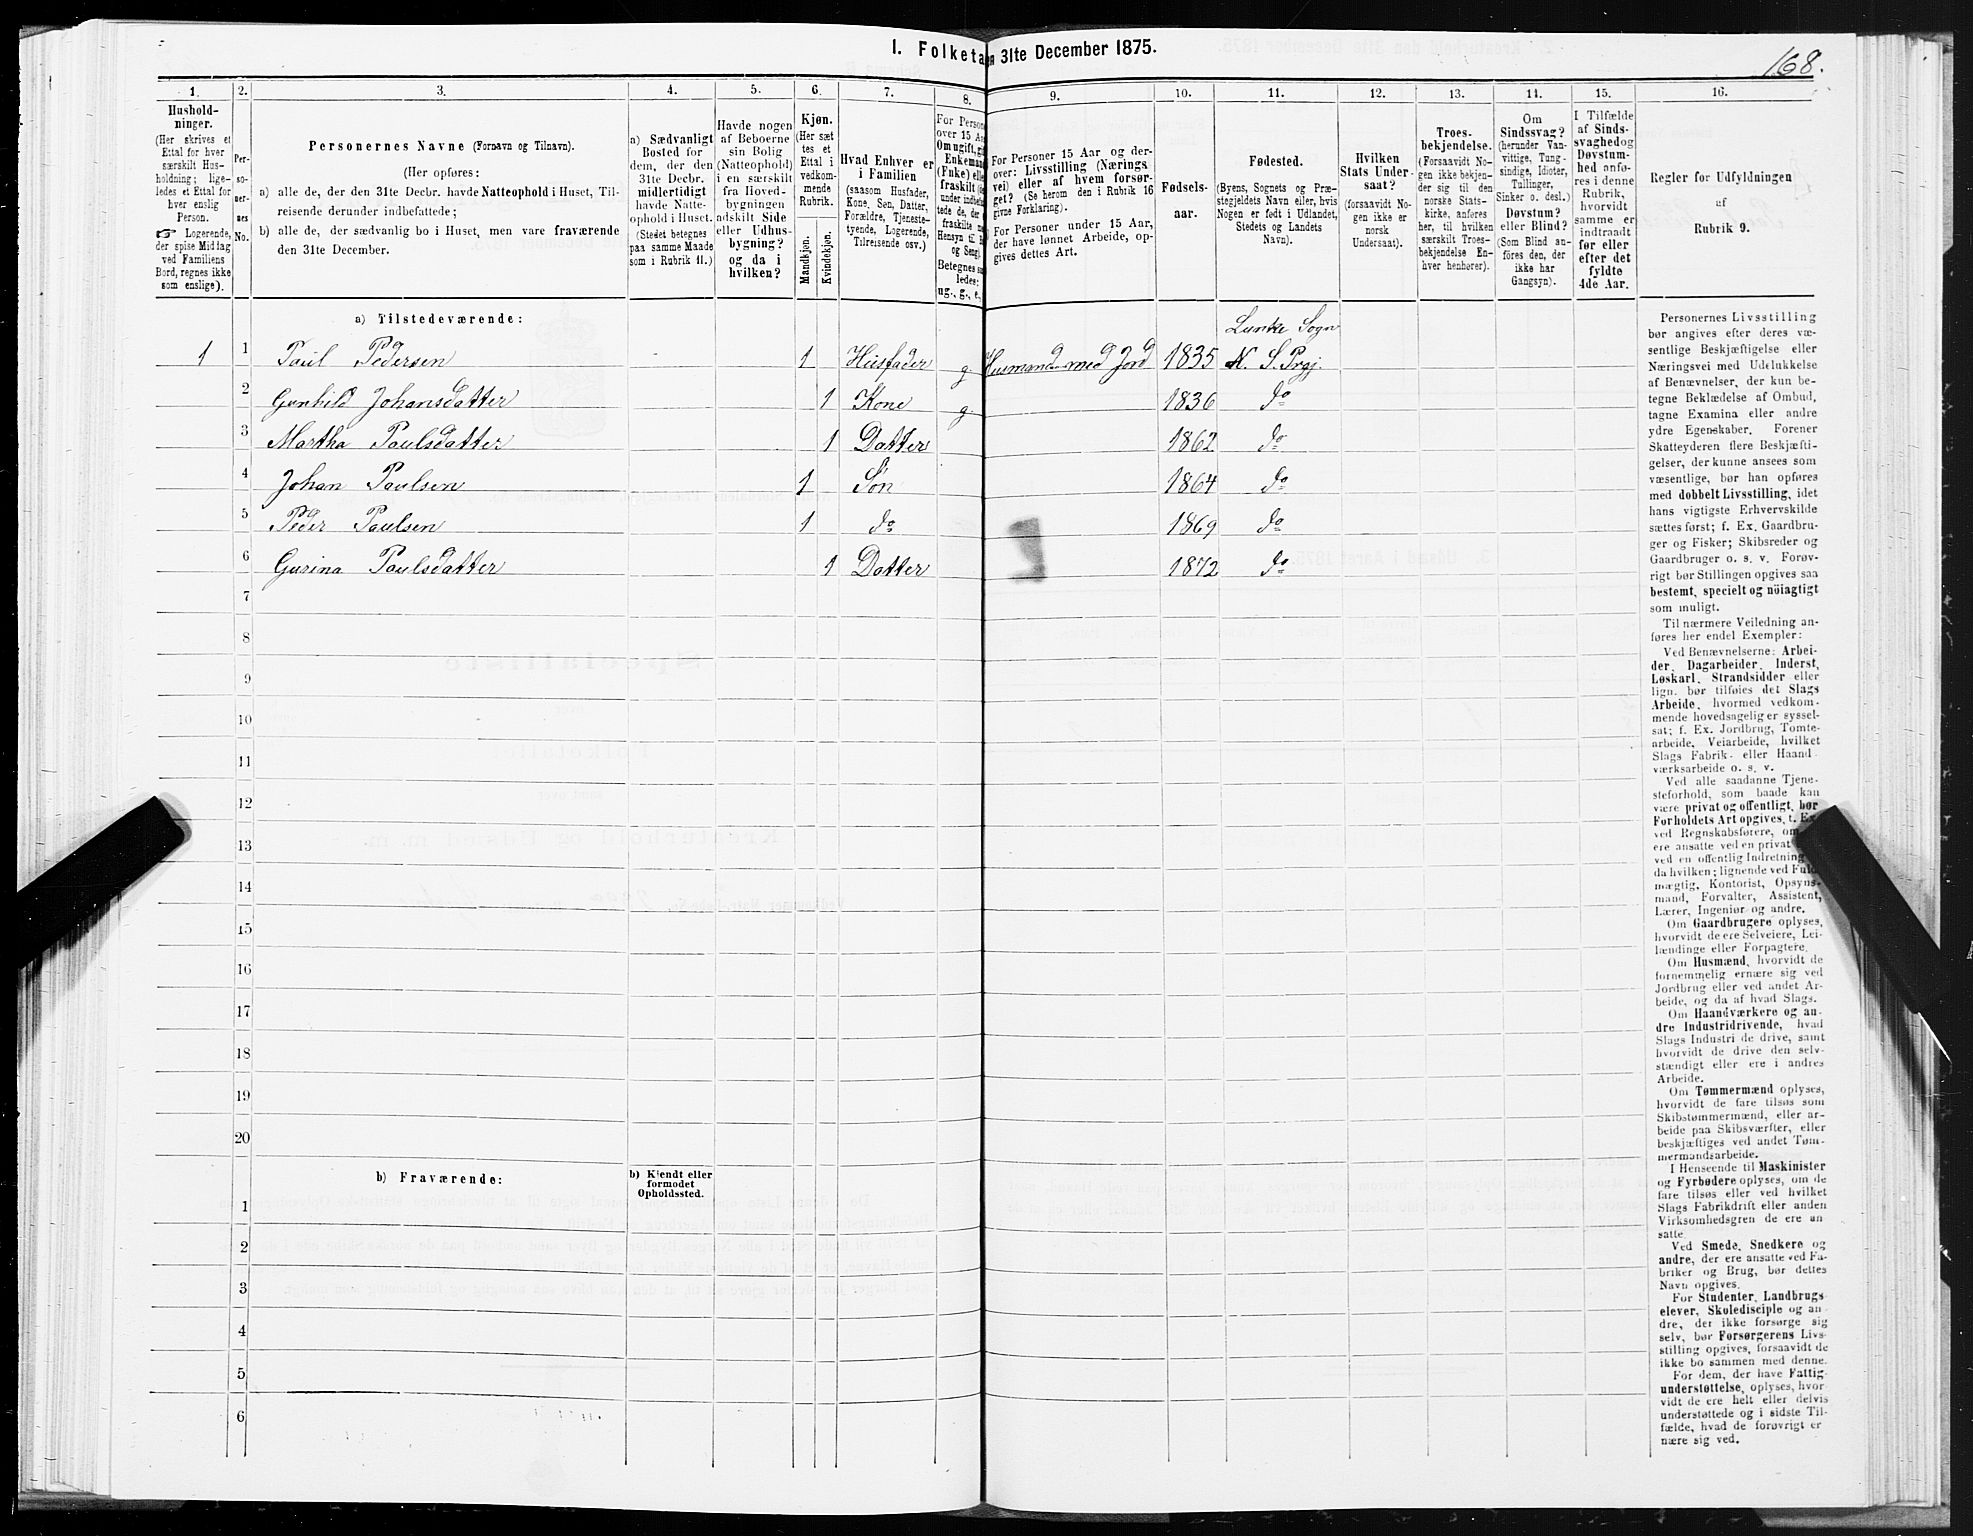 1. Folketa
n 31te December 1875.
168.
1.
2.
3.
4.
5.
6.
7.
8.
9.
10.
11.
12.
13.
14.
15.
16.
Hushold-
ninger.
(Her skrives et
Ettal for hver
særskilt Hus-
holdning; lige-
ledes et Ettal for
hver enslig
Person.
☞ Logerende,
der spise Middag
ved Familiens
Bord, regnes ikke
som enslige).
Per-
so-
ner-
nes
No.
Personernes Navne (Fornavn og Tilnavn).
(Her opføres:
a) alle de, der den 31te Decbr. havde Natteophold i Huset, Til-
reisende derunder indbefattede;
b) alle de, der sædvanlig bo i Huset, men vare fraværende
den 31te December.
a) Sædvanligt
Bosted for
dem, der den
31te Decbr.
midlertidigt
havde Natte-
ophold i Huset.
(Stedet betegnes
paa samme Maade
som i Rubrik 11.)
Havde nogen
af Beboerne
sin Bolig
(Natteophold)
i en særskilt
fra Hoved-
bygningen
adskilt Side
eller Udhus-
bygning?
og da i
hvilken?
Kjøn.
(Her sæt
tes et
Ettal i
vedkom-
mende
Rubrik.
Mandkjøn.
Kvindekjøn.
Hvad Enhver er
i Familien
(saasom Husfader,
Kone, Søn, Datter,
Forældre, Tjeneste-
tyende, Logerende,
Tilreisende osv.)
For Person
over 15 Aa
Om ugift, gi
Enkeman
(Fnke) elle
fraskilt (
under indbefa
tede de, der
fraskilte m
Hensyn til
og Seng).
Betegnes sa
ledes:
ug., g., e.,
For Personer 15 Aar og der-
over: Livsstilling (Nærings
vei) eller af hvem forsør-
get? (Se herom den i Rubrik 16
givne Forklaring).
For Personer under 15 Aar,
der have lønnet Arbeide, op-
gives dettes Art.
Fødsels-
aar.
Fødested.
(Byens, Sognets og Præ-
stegjeldets Navn eller, hvis
Nogen er født i Udlandet,
Stedets og Landets
Navn).
Hvilken
Stats Under-
saat?
(forsaavidt No-
gen ikke er
norsk
Undersaat).
Troes-
bekjendelse.
(Forsaavidt No-
gen ikke bekjen-
der sig til den
norske Stats-
kirke, anføres
her, til hvilken
særskilt Troes-
bekjendelse En-
hver henhører).
Om
Sindssvag?
(herunder Van-
vittige, Tung-
sindige, Idioter,
Tullinger,
Sinker o. desl.)
Døvstum?
eller Blind?
(Som Blind an-
føres den, der
ikke har
Gangsyn).
I Tilfælde
af Sinds-
svaghed og
Døvstum-
hed anfø-
res i denne
Rubrik,
hvorvidt
samme er
indtraadt
før eller
efter det
fyldte
4de Aar.
Regler for Udfyldningen
af
Rubrik 9.
a) Tilstedeværende:
Lunke Sogn
1 1 Paul Pedersen 1 Husfader g. Husmand med Jord 1835 N. S. Prgj.
2 Gunhild Johansdatter 1 Kone g. 1836 do
3 Martha Paulsdatter 1 Datter 1862 do
4 Johan Paulsen 1 Søn 1864 do
5 Peder Paulsen 1 do 1869 do
6 Gurina Paulsdatter 1 Datter 1872 do
7
8
9
10
11
12
13
14
15
16
17
18
19
20
b) Fraværende:
b) Kjendt eller
formodet
Opholdssted.
1
2
3
4
5
6
Personernes Livsstilling
bør angives efter deres væ-
sentlige Beskjæftigelse eller
Næringsvei med Udelukkelse
af Benævnelser, der kun be-
tegne Beklædelse af Ombud,
tagne Examina eller andre
ydre Egenskaber. Forener
Skatteyderen flere Beskjæfti-
gelser, der kunne ansees som
væsentlige, bør han opføres
med dobbelt Livsstilling, idet
hans vigtigste Erhvervskilde
sættes først; f. Ex. Gaardbru-
ger og Fisker; Skibsreder og
Gaardbruger o. s. v. Forøv-
rigt bør Stillingen opgives saa
bestemt, specielt og nöiagtigt
som muligt.
Til nærmere Veiledning an-
føres her endel Exempler:
Ved Benævnelserne: Arbei-
der, Dagarbeider, Inderst,
Løskarl, Strandsidder eller
lign. bør tilføies det Slags
Arbeide, hvormed vedkom-
mende hovedsagelig er syssel-
sat; f. Ex. Jordbrug, Tomte-
arbeide, Veiarbeide, hvilket
Slags Fabrik- eller Haand-
værksarbeide o. s. v.
Ved alle saadanne Tjene-
steforhold, som baade kan
være privat og offentligt, bør
Forholdets Art opgives, t. Ex.
ved Regnskabsførere, om
ere ansatte ved en privat
ved en offentlig Indretning
da hvilken; lignende ved Fuld-
mægtig, Kontorist, Opsyns-
mand, Forvalter, Assistent,
Lærer, Ingeniør og andre.
Om Gaardbrugere oplyses,
hvorvidt de ere Selveiere, Lei-
lændinge eller Forpagtere.
Om Husmænd, hvorvidt de
fornemmelig ernære sig ved
Jordbrug eller ved andet Ar-
beide, og da af hvad Slags.
Om Haandværkere og an-
dre Industridrivende, hvad
Slags Industri de drive, samt
hvorvidt de drive den selv-
stændigt eller ere i andres
Arbeide.
Om Tømmermænd oplyses,
hvorvidt de fare tilsøs som
Skibstømmermænd, eller ar-
beide paa Skibsværfter, eller
beskjæftiges ved andet Tøm-
mermandsarbeide.
I Henseende til Maskinister
og Fyrbødere oplyses, om de
fare tilsøs eller ved hvilket
Slags Fabrikdrift eller anden
Virksomhedsgren de ere an-
satte.
Ved Smede, Snedkere og
andre, der ere ansatte ved Fa-
briker og Brug, bør dettes
Navn opgives.
For Studenter, Landbrugs
elever, Skoledisciple og an-
dre, der ikke forsørge sig
selv, bør Forsørgerens Livs-
stilling opgives, forsaavidt de
ikke bo sammen med denne.
For dem, der have Fattig-
understøttelse, oplyses, hvor-
vidt de ere helt eller delvis
understøttede og i sidste Til-
fælde, hvad de forøvrigt er
nære sig ved.